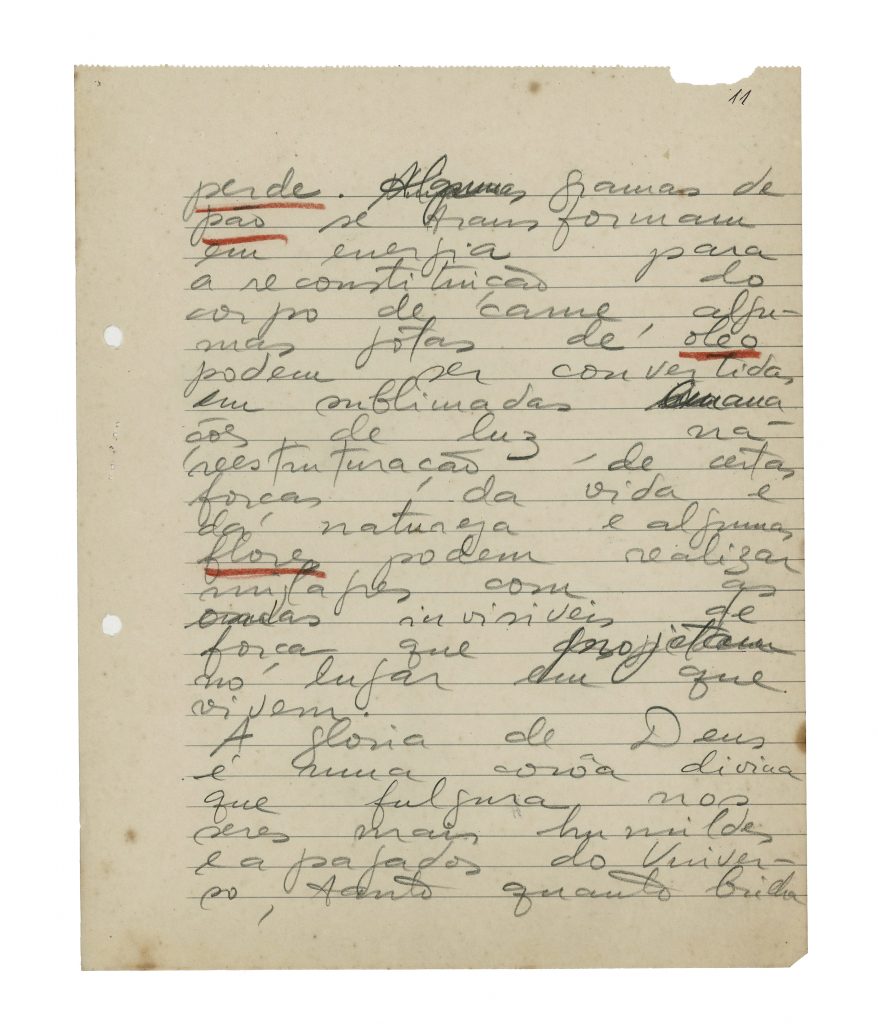 11
perde. Algumas gramas de
pão se transformam
em energia para
a reconstituição do
corpo de carne algu-
mas gôtas de óleo
podem ser convertidas
em sublimadas emana
ções de luz na
reestruturação de certas
forças da vida e
da natureza e algumas
flores podem realizar
milagres com as
ondas invisiveis de
força que projetam
no lugar em que
vivem.
A gloria de Deus
é uma corôa divina
que fulgura nos
seres mais humildes
e apagados do Univer-
so, tanto quanto brilha